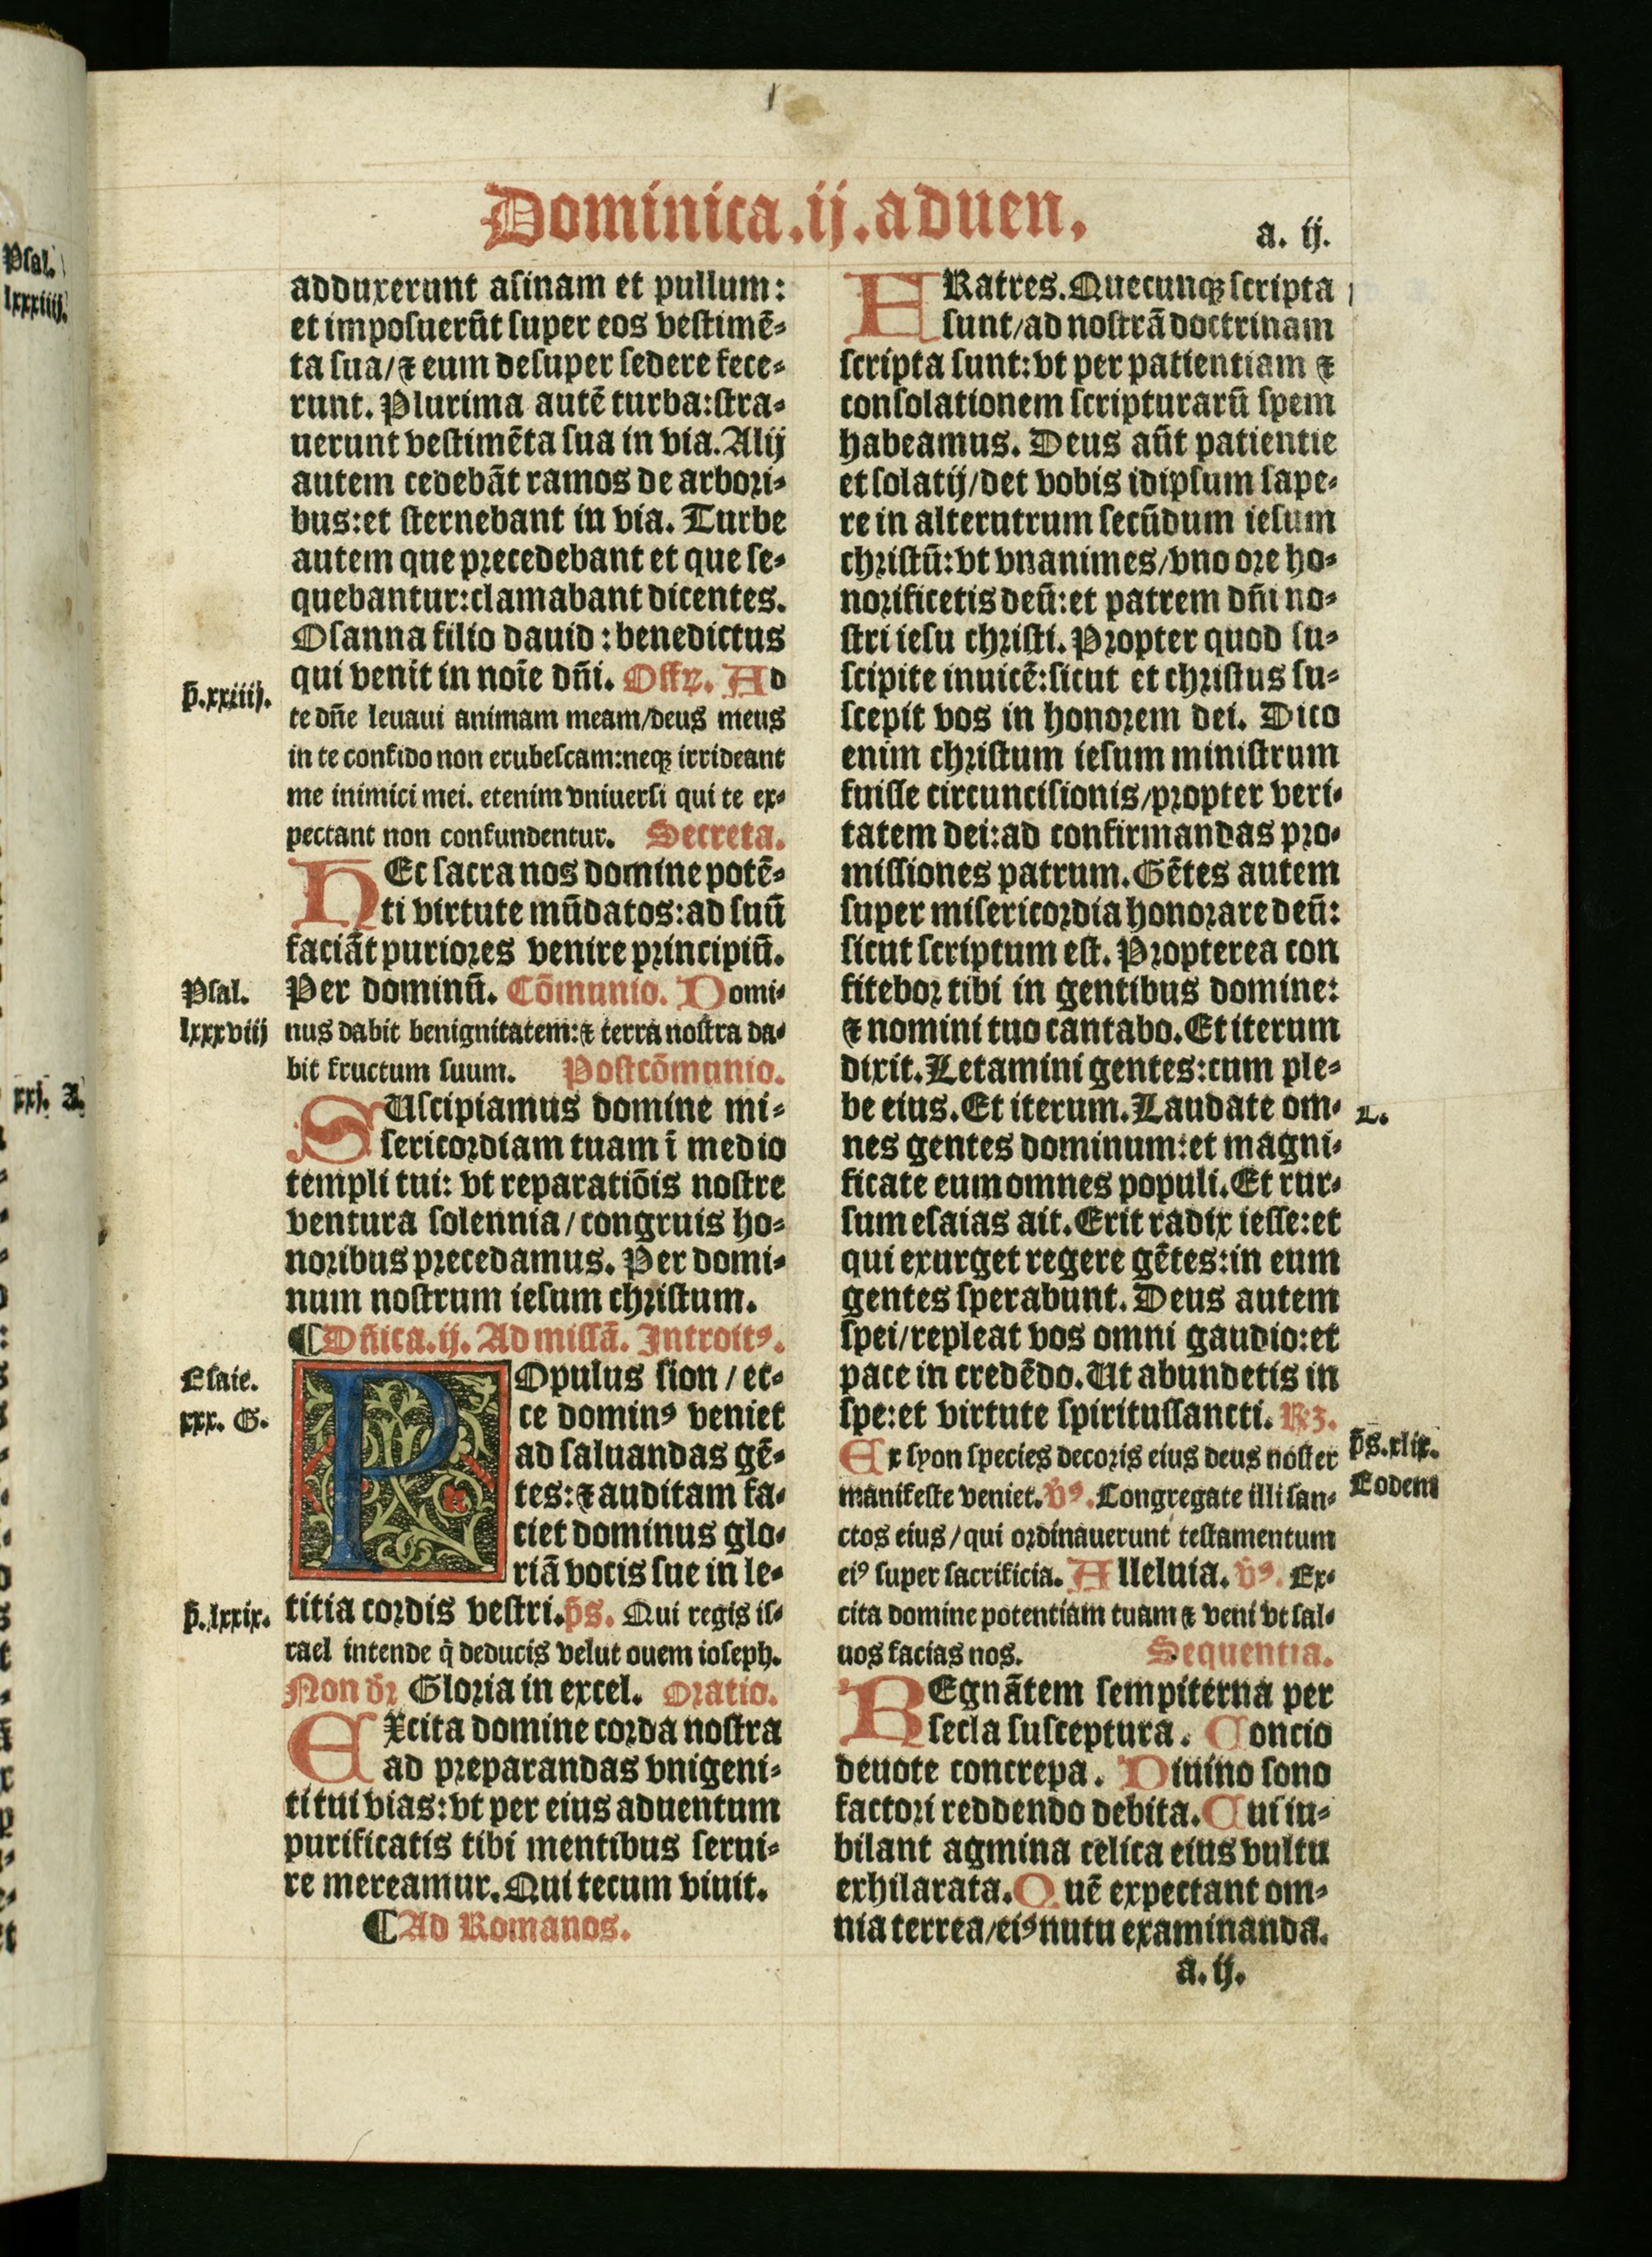 Dominica.ij.aduen.
a. ij.
adduxerunt asinam et pullum:
et imposuerūt super eos vestimē-
ta sua/⁊ eum desuper sedere fece-
runt. Plurima autē turba:stra-
uerunt vestimēta sua in via. Alij
autem cedebāt ramos de arbori-
bus:et sternebant in via. Turbe
autem que precedebant et que se-
quebantur:clamabant dicentes.
Osanna filio dauid : benedictus
qui venit in noīe dn̄i. Offꝝ. Ad
p̄.xxiiij.
te dn̄e leuaui animam meam/deus meus
in te confido non erubescam:neqꝫ irrideant
me inimici mei. etenim vniuersi qui te ex-
pectant non confundentur. Secreta.
HEc sacra nos domine potē-
ti virtute mūdatos:ad suū
faciāt puriores venire principiū.
Psal.
lxxxviij
Per dominū. Cōmunio. Domi-
nus dabit benignitatem:⁊ terra nostra da-
bit fructum suum. Postcōmunio.
SUscipiamus domine mi-
sericordiam tuam ī medio
templi tui: vt reparatiōis nostre
ventura solennia/congruis ho-
noribus precedamus. Per domi-
num nostrum iesum christum.
¶Dn̄ica.ij. Ad missā. Introitꝰ.
Esaie.
xxx. G.
POpulus sion / ec-
ce dominꝰ veniet
ad saluandas gē-
tes:⁊ auditam fa-
ciet dominus glo-
riā vocis sue in le-
p̄.lxxix.
titia cordis vestri.p̄s. Qui regis is-
rael intende q̄ deducis velut ouem ioseph.
Non dr̄ Gloria in excel. Oratio.
EXcita domine corda nostra
ad preparandas vnigeni-
ti tui vias:vt per eius aduentum
purificatis tibi mentibus serui-
re mereamur. Qui tecum viuit.
¶Ad Romanos.
FRatres. Quecunqꝫ scripta
sunt/ad nostrā doctrinam
scripta sunt:vt per patientiam ⁊
consolationem scripturarū spem
habeamus. Deus aūt patientie
et solatij/det vobis idipsum sape-
re in alterutrum secūdum iesum
christū:vt vnanimes/vno ore ho-
norificetis deū:et patrem dn̄i no-
stri iesu christi. Propter quod su-
scipite inuicē:sicut et christus su-
scepit vos in honorem dei. Dico
enim christum iesum ministrum
fuisse circuncisionis/propter veri-
tatem dei:ad confirmandas pro-
missiones patrum. Gētes autem
super misericordia honorare deū:
sicut scriptum est. Propterea con
fitebor tibi in gentibus domine:
⁊ nomini tuo cantabo. Et iterum
dixit. Letamini gentes:cum ple-
be eius. Et iterum. Laudate om-
nes gentes dominum:et magni-
ficate eum omnes populi. Et rur-
sum esaias ait. Erit radix iesse:et
qui exurget regere gētes:in eum
gentes sperabunt. Deus autem
spei/repleat vos omni gaudio:et
pace in credēdo. Ut abundetis in
spe:et virtute spiritussancti. Rꝫ.
p̄s.xlix.
Eodem
Ex syon species decoris eius deus noster
manifeste veniet. v̄ꝰ. Congregate illi san-
ctos eius/qui ordinauerunt testamentum
eiꝰ super sacrificia. Alleluia. v̄ꝰ. Ex-
cita domine potentiam tuam ⁊ veni vt sal-
uos facias nos. Sequentia.
REgnātem sempiterna per
secla susceptura. Concio
deuote concrepa. Diuino sono
factori reddendo debita. Cui iu-
bilant agmina celica eius vultu
exhilarata. Quē expectant om-
nia terrea/eiꝰ nutu examinanda.
a. ij.
Psal.
lxxxiiij.
xxj. A.